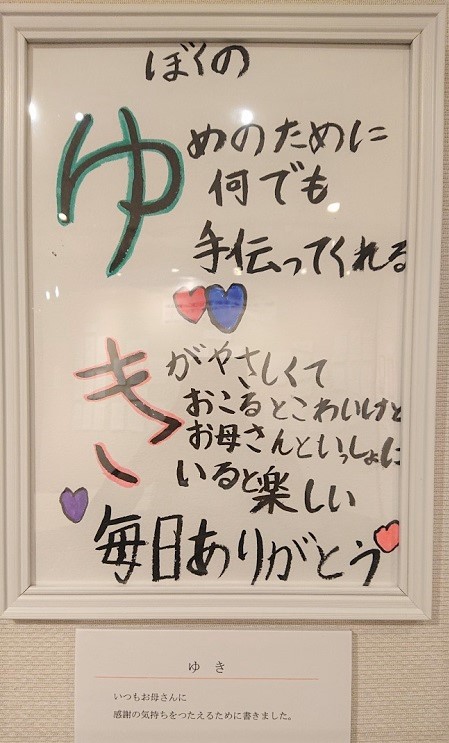 ぼくの
ゆめのために
何でも
手伝ってくれる
きがやさしくて
おこるとこわいけど
お母さんといっしょに
いると楽しい
毎日ありがとう
ゆき
いつもお母さんに
感謝の気持ちをつたえるために書きました。